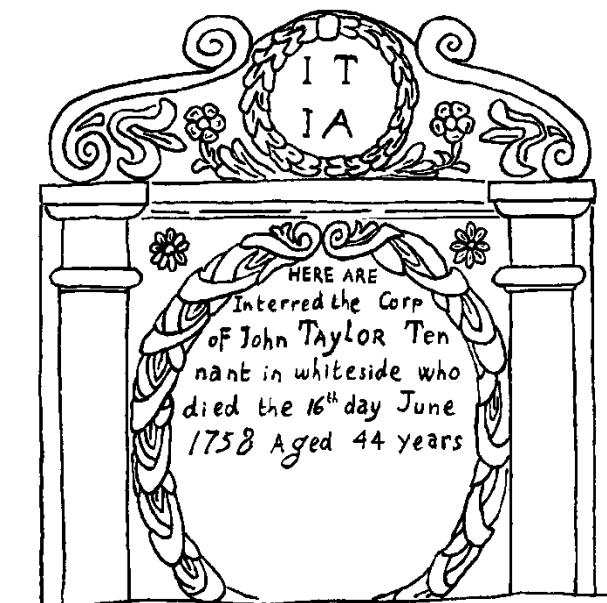 I T
I A
HERE ARE
Interred the Corp
of John TAylOR Ten
nant in whiteside who
died the 16th day June
1758 Aged 44 years